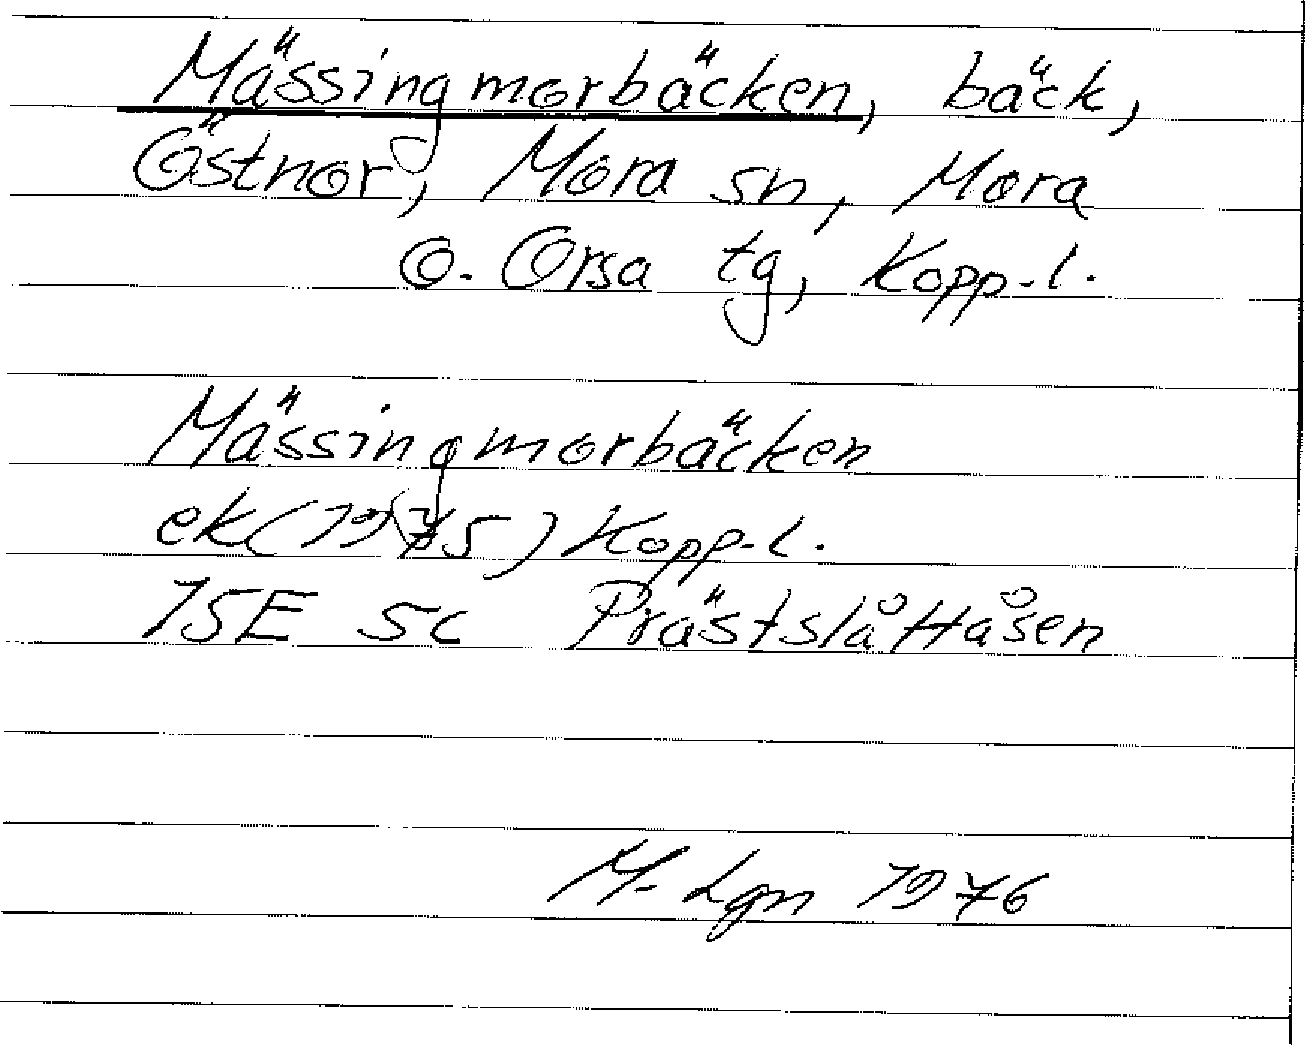 Mässingmorbäcken, bäck,
Östnor, Mora sn, Mora
o. Orsa tg, Kopp.l.
Mässingmorbäcken
ek(1975) Kopp.l.
15E 5c Prästslåttåsen
M. Lgn 1976